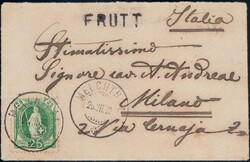 FRUTT
Italia
Stimatissimo
Signore cav. A. Andreae
Milano
2 Via Cernaja 2
MELCHTHAL
25